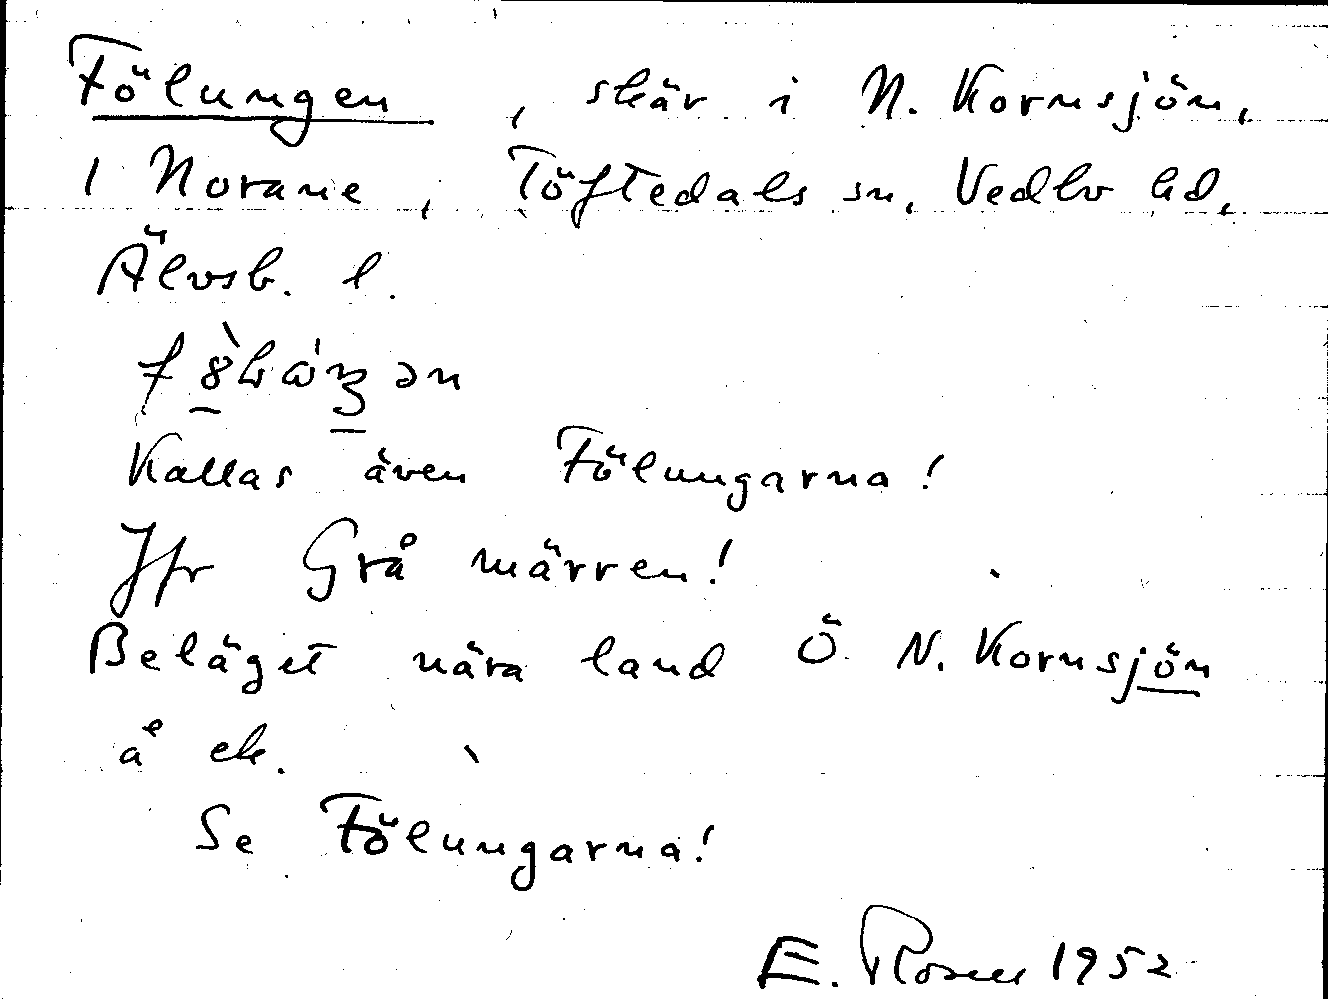 Fölungen, skär i N. Kornsjön,
i Norane, Töftedals sn, Vedbo hd,
Älvsb. l.
Kallas även Fölungarna!
Jfr Grå märren!
Beläget nära land Ö N. Kornsjön
å ek.
Se Fölungarna!
E. Rosell 1952